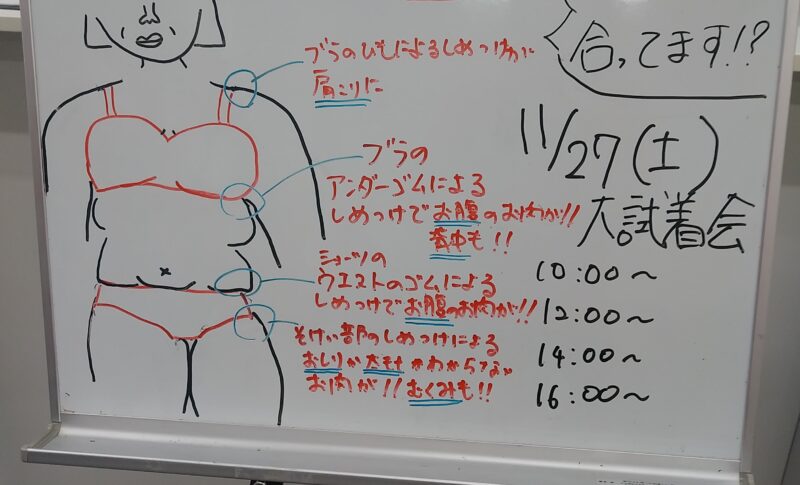 合ってます!?
ブラのひもによるしめつけが
肩こりに
11/27(土)
大試着会
10:00〜
12:00〜
14:00〜
16:00〜
ブラの
アンダーゴムによる
しめつけでお腹のお肉が!!
背中も!!
ショーツの
ウエストのゴムによる
しめつけでお腹のお肉が!!
そけい部のしめつけによる
おしりか太ももかわからない
お肉が!!むくみも!!